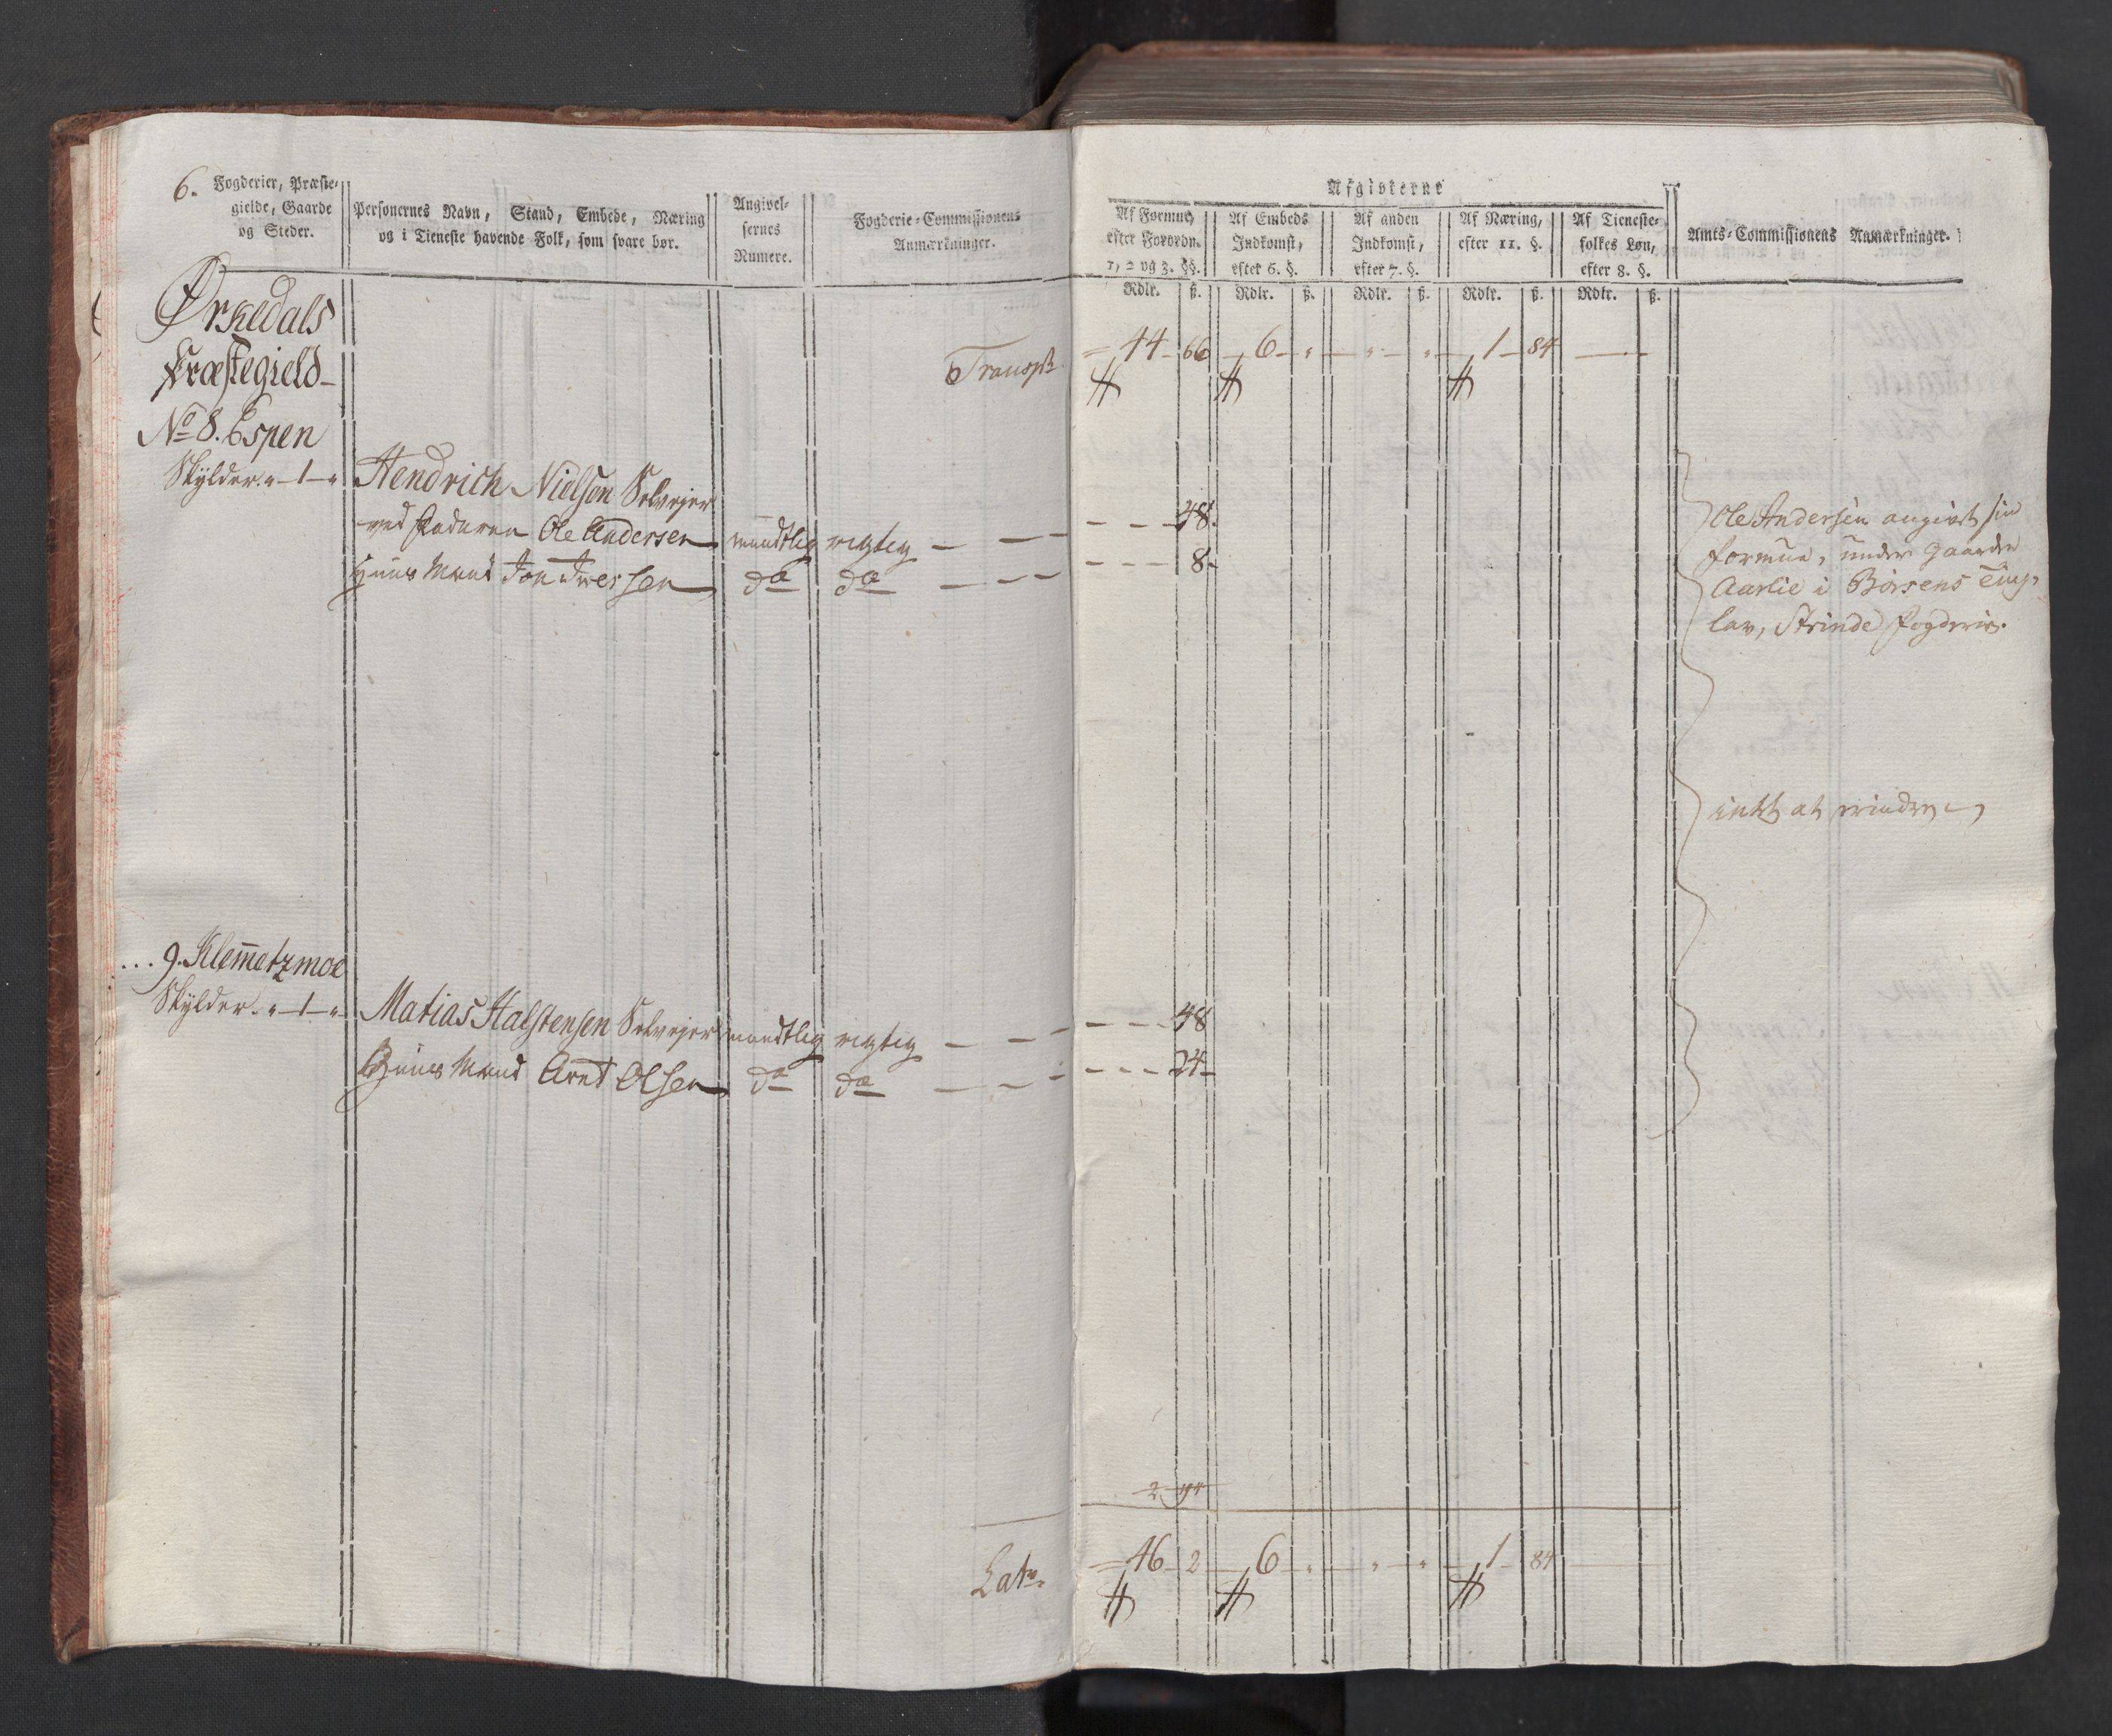 6.
Fogderier, Præste-
gielde, Gaarde
og Steder.
Personernes Navn, Stand, Embede, Næring
og i Tieneste havende Folk, som svare bør.
Angivel-
sernes
Numere.
Fogderie-Commissionens
Anmærkninger.
Afgivterne
Af Formue,
efter Forordn.
1, 2 og 3. §§.
Af Embeds
Indkomst,
efter 6. §.
Af anden
Indkomst,
efter 7. §.
Af Næring,
efter 11. §.
Af Tieneste-
folkes Løn,
efter 8. §.
Amts-Commissionens Anmærkninger.
Rdlr. ß. Rdlr. ß. Rdlr. ß. Rdlr. ß. Rdlr. ß.
Ørkedals
Præstegield
Transpt 44 66 6 " " " 1 84
No 8. Espen
Skylder " 1 " Hendrich Nielsen Selvejer
ved Faderen Ole Andersen mundtlig rigtig 48.
Huus Mand Jon Iversen do do 8
Ole Andersen angivet sin
formue, under Gaarden
Aarlie i Børsens Ting-
lav, Strinde Fogderie.
intet at erindre
9. Klemetzmoe
Skylder " 1 " Matias Halstensen Selvejer mundtlig rigtig 48
Huus Mand Arnt Olsen do do 24
Lat. 46 2 6 " " " 1 84